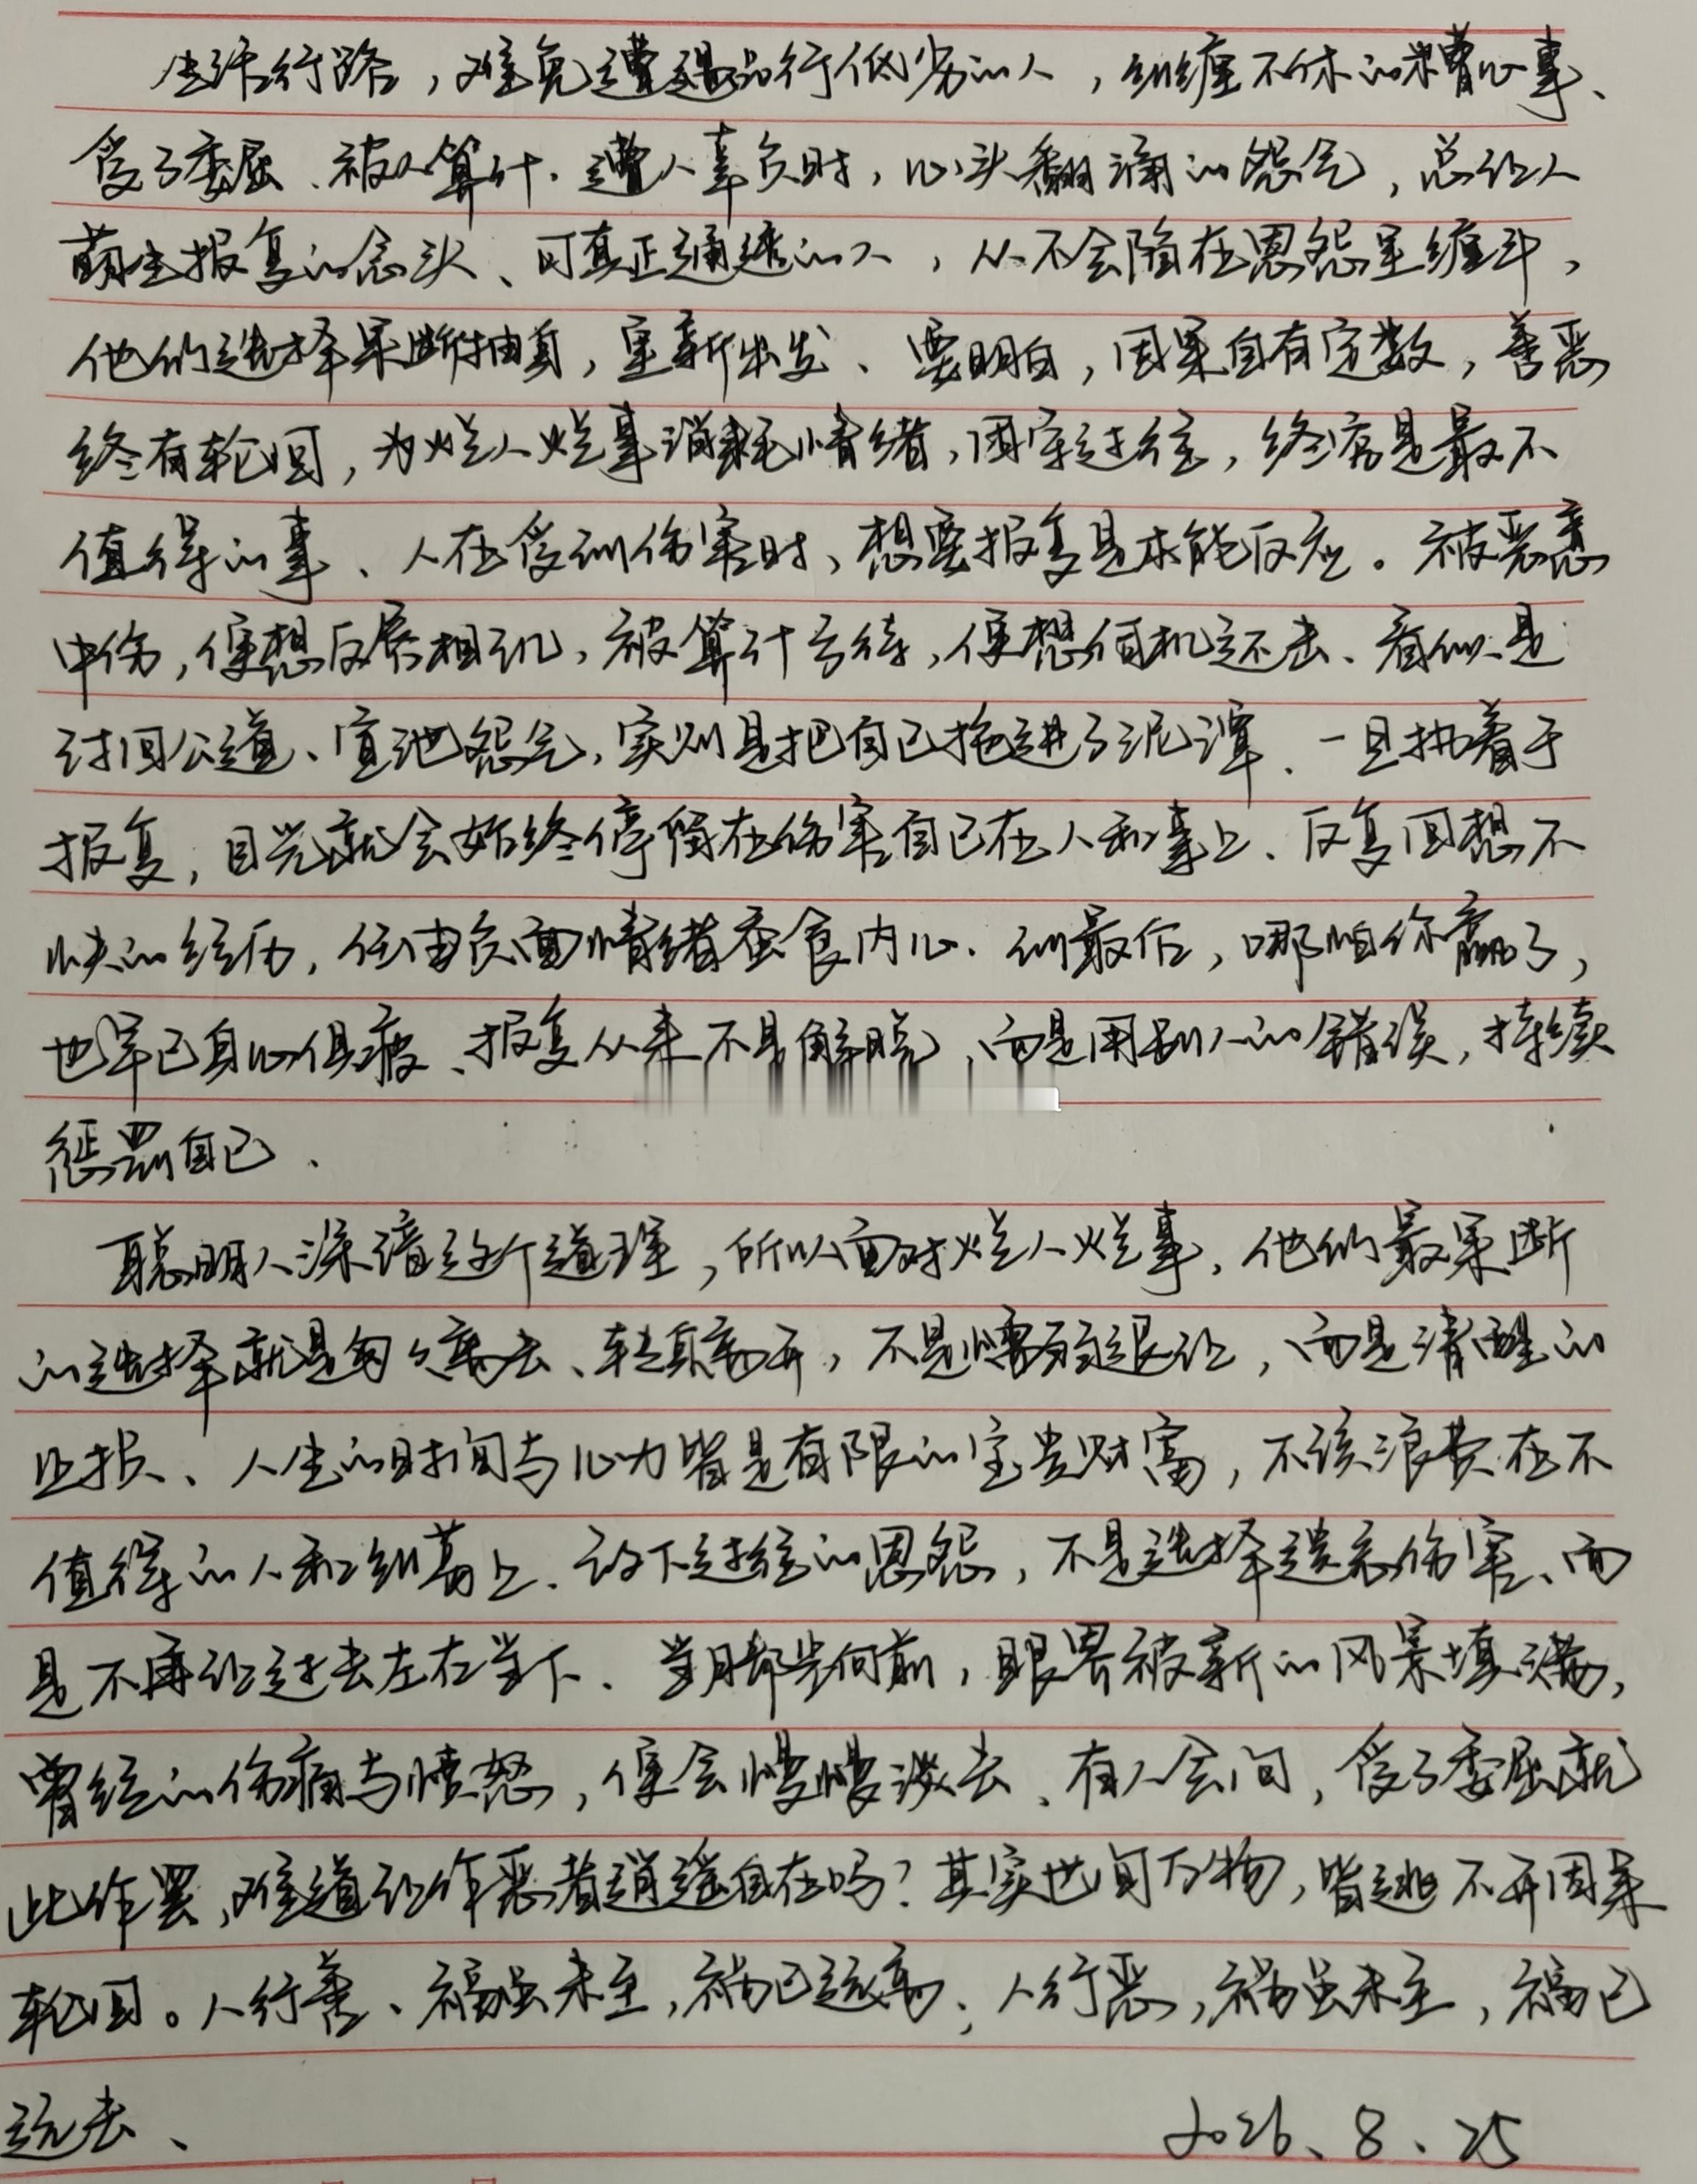 生活行路，难免遭遇品行低劣的人，纠缠不休的糟心事、
受了委屈、被人算计、遭人辜负时，心头翻涌的怨气，总让人
萌生报复的念头、可真正通透的人，从不会陷在恩怨里缠斗，
他们选择果断抽身，重新出发、要明白，因果自有定数，善恶
终有轮回，为烂人烂事消耗情绪，困守过往，终究是最不
值得的事、人在受到伤害时、想要报复是本能反应。被恶意
中伤，便想反唇相讥，被算计亏待，便想伺机还击、看似是
讨回公道、宣泄怨气，实则是把自己拖进了泥潭、一旦执着于
报复，目光就会始终停留在伤害自己在人和事上、反复回想不
快的经历，任由负面情绪蚕食内心、到最后，哪怕你赢了，
也早已身心俱疲、报复从来不是解脱、而是用别人的错误，持续
惩罚自己、
聪明人深谙这个道理，所以面对烂人烂事，他们最果断
的选择就是匆匆离去、转身离开，不是懦弱退让，而是清醒的
止损、人生的时间与心力皆是有限的宝贵财富，不该浪费在不
值得的人和纠葛上、放下过往的恩怨，不是选择遗忘伤害、而
是不再让过去左右当下、当脚步向前，眼界被新的风景填满，
曾经的伤痛与愤怒，便会慢慢淡去、有人会问，受了委屈就
此作罢，难道让作恶者逍遥自在吗？其实世间万物，皆逃不开因果
轮回。人行善、福虽未至，祸已远离；人行恶，祸虽未至，福已
远去、
2026、8、25